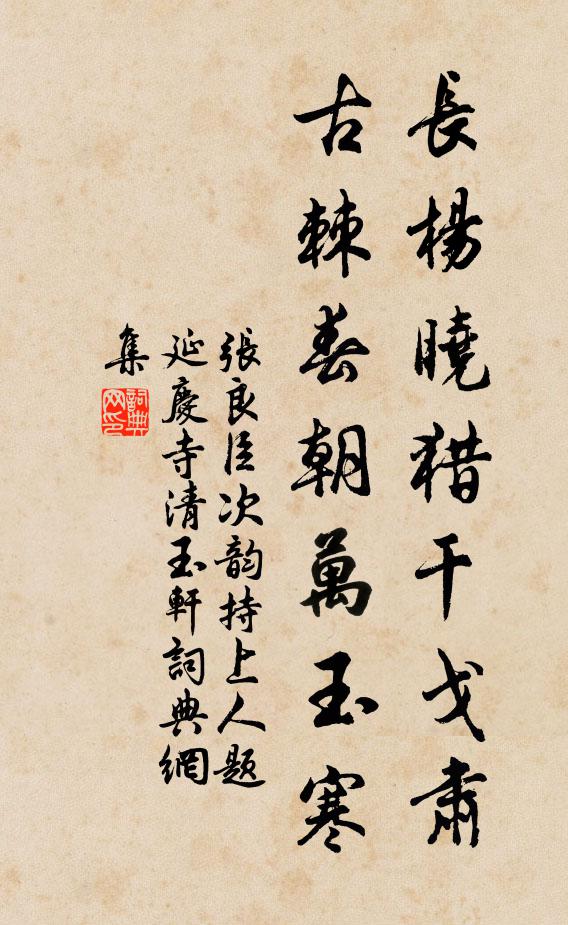 長楊曉猎干戈肅
古棘春朝萬玉寒
張良臣次韵持上人题
延慶寺清玉軒詞典網
集
詞典
网印